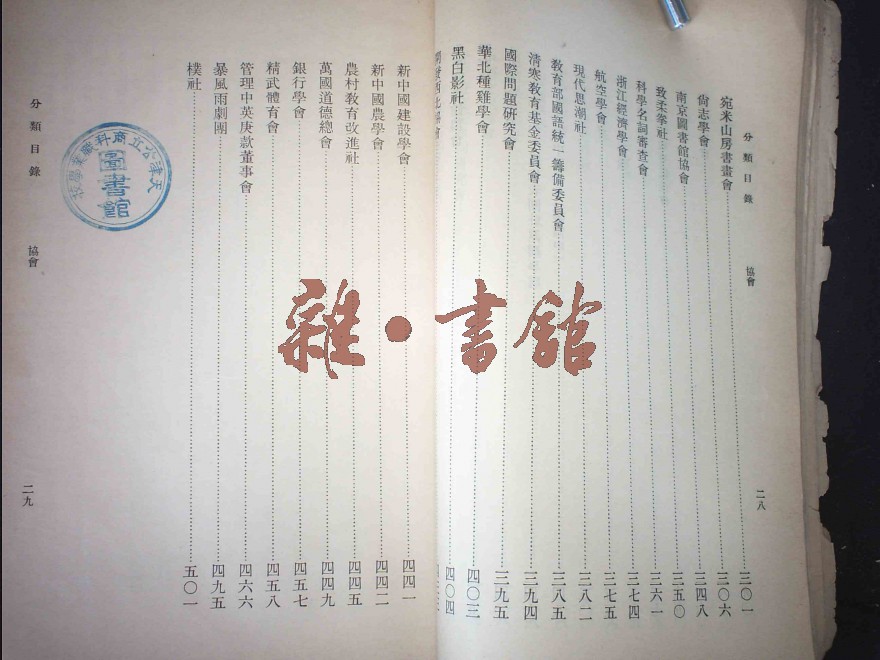 分類目錄 協會 二八
宛米山房書畫會……三〇一
尙志學會……三〇六
南京圖書館協會……三四八
致柔拳社……三五〇
科學名詞審查會……三六一
浙江經濟學會……三七四
航空學會……三七五
現代思潮社……三八二
教育部國語統一籌備委員會……三八五
清寒教育基金委員會……三九四
國際問題研究會……三九五
華北種雞學會……四〇三
黑白影社……四〇四
開發西北協會
新中國建設學會……四四一
新中國農學會……四四二
農村教育改進社……四四五
萬國道德總會……四四九
銀行學會……四五七
精武體育會……四五八
管理中英庚款董事會……四六六
暴風雨劇團……四九五
樸社……五〇一
分類目錄 協會 二九
天津公立商科職業學校
圖書館
雜•書館